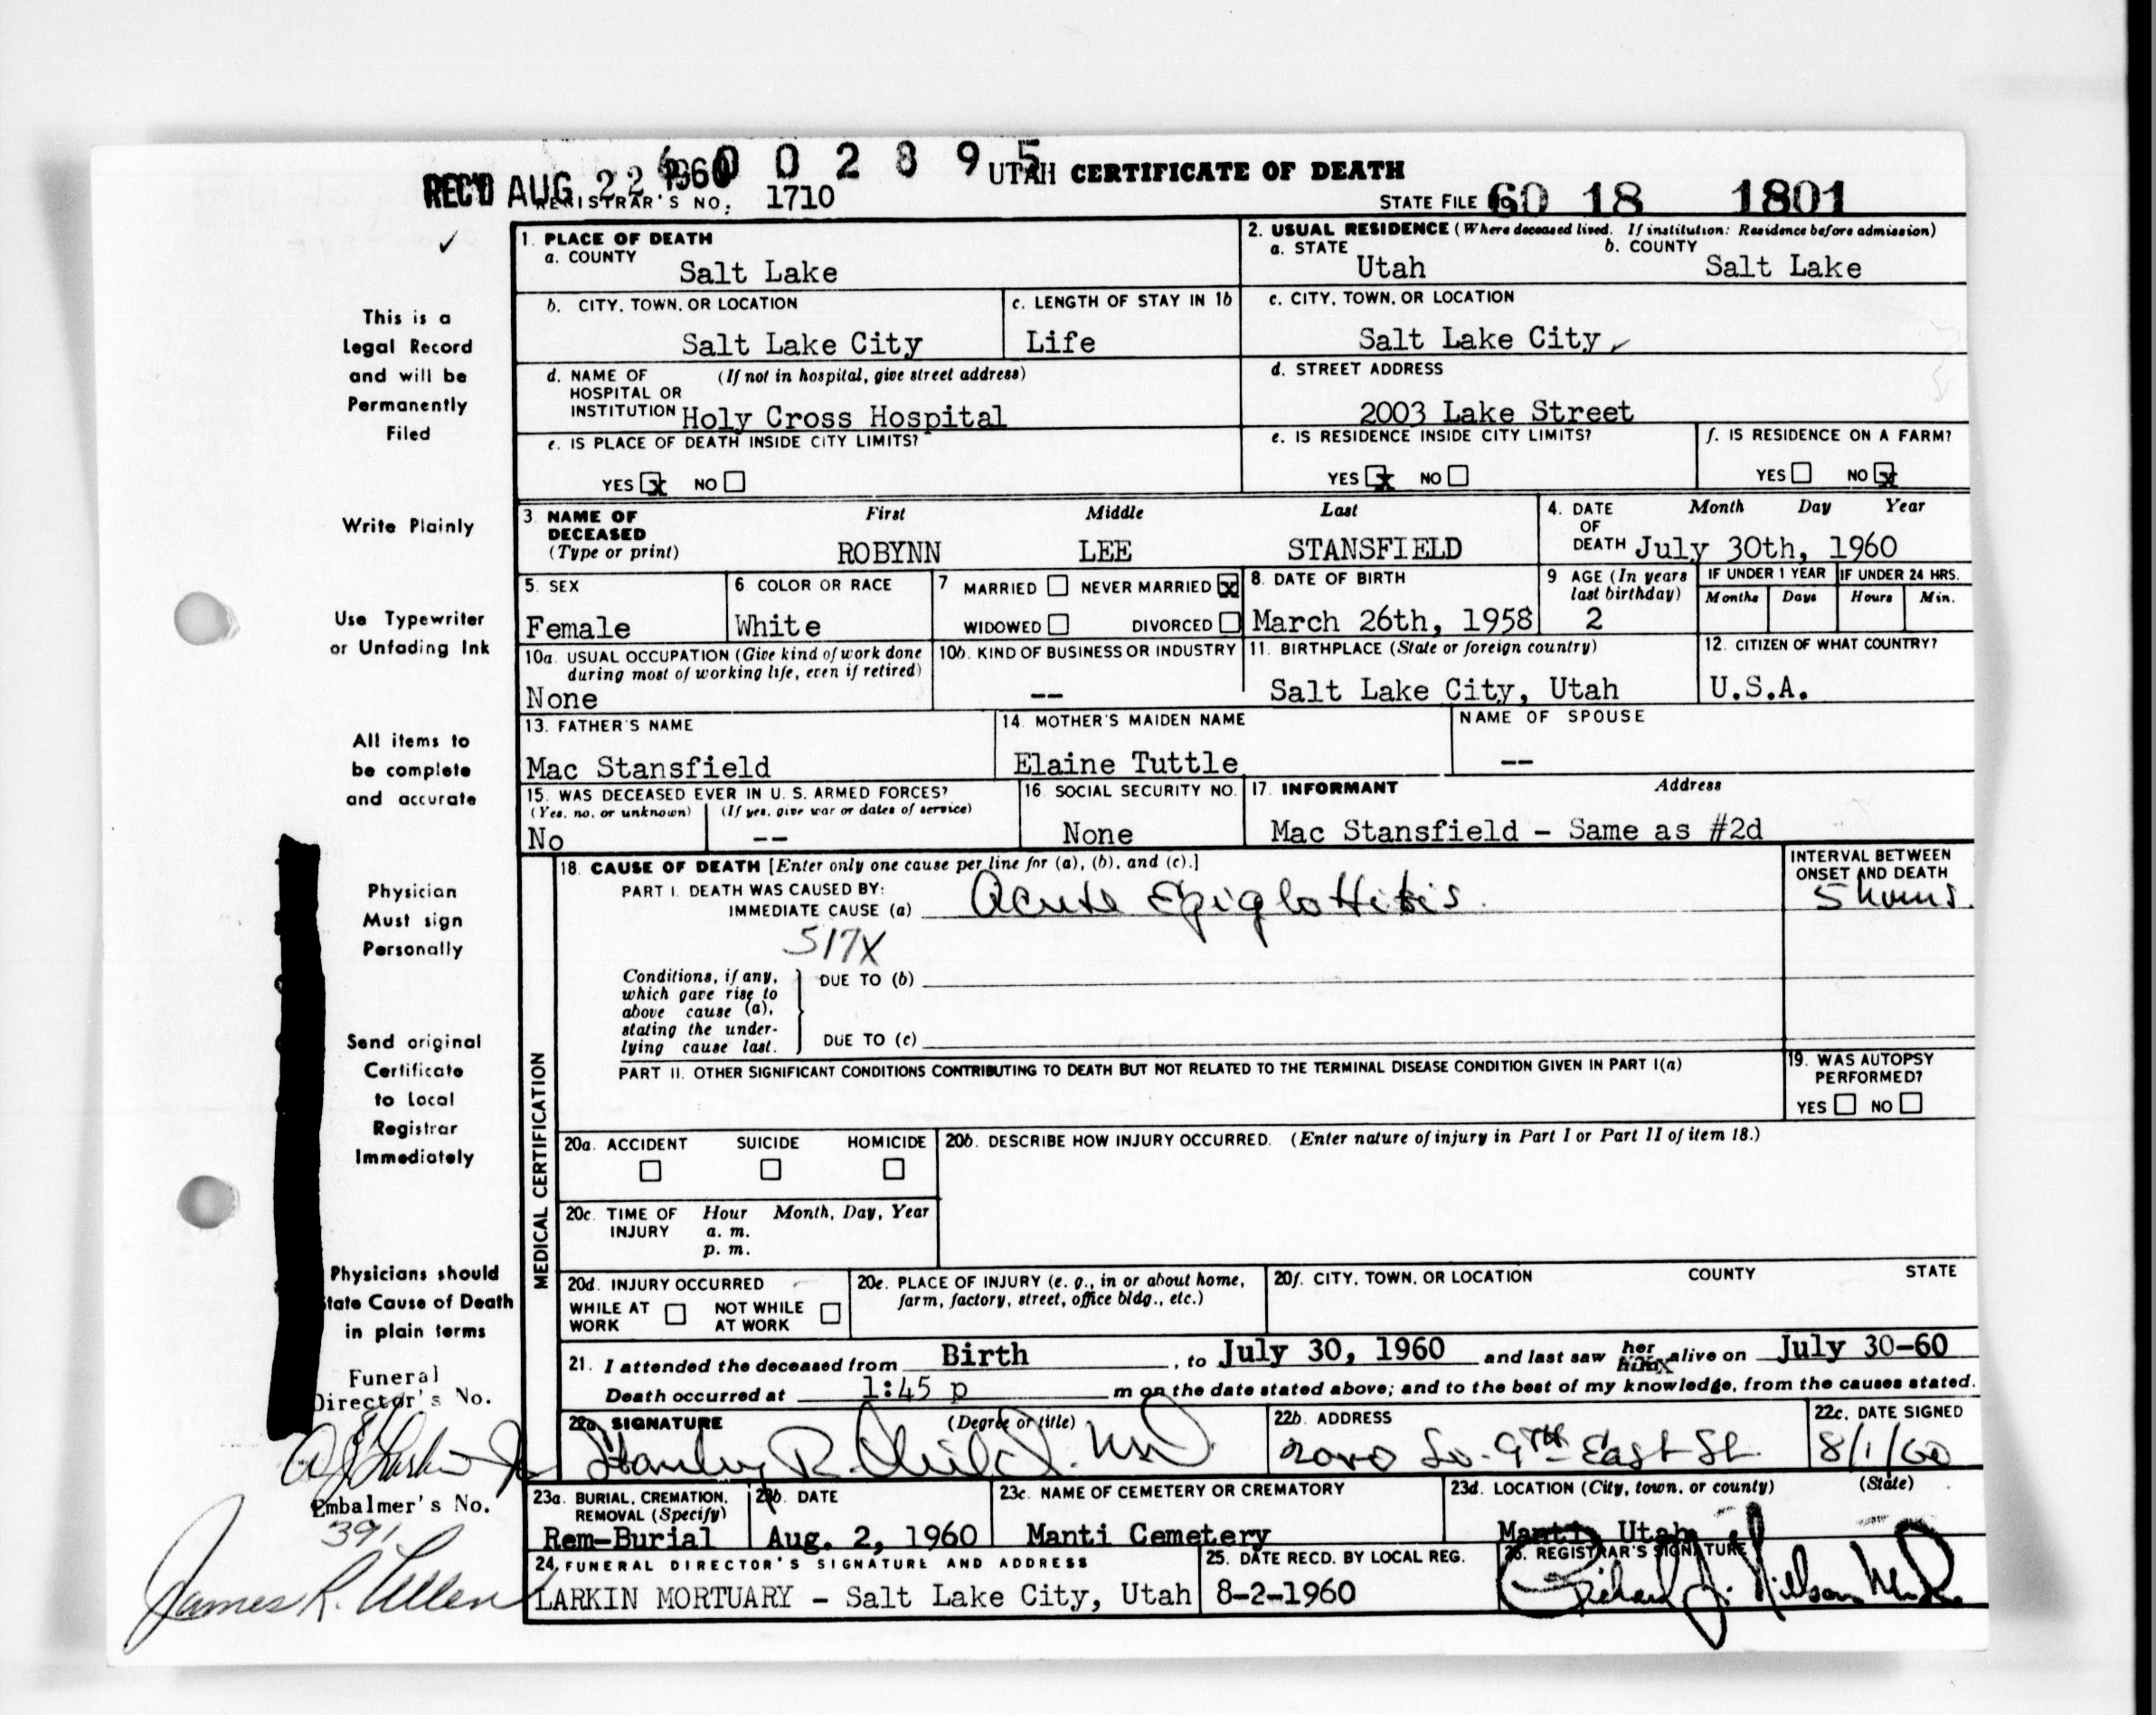 6002895
REC'D AUG 22 1960 UTAH CERTIFICATE OF DEATH
REGISTRAR'S NO. 1710 STATE FILE 60 18 1801
✓
This is a
Legal Record
and will be
Permanently
Filed
Write Plainly
Use Typewriter
or Unfading Ink
All items to
be complete
and accurate
Physician
Must sign
Personally
Send original
Certificate
to Local
Registrar
Immediately
Physicians should
State Cause of Death
in plain terms
Funeral
Director's No.
Embalmer's No.
391
James R. Allen
1. PLACE OF DEATH
a. COUNTY
Salt Lake
2. USUAL RESIDENCE (Where deceased lived. If institution: Residence before admission)
a. STATE b. COUNTY
Utah Salt Lake
b. CITY, TOWN, OR LOCATION
Salt Lake City
c. LENGTH OF STAY IN 1b
Life
c. CITY, TOWN, OR LOCATION
Salt Lake City
d. NAME OF (If not in hospital, give street address)
HOSPITAL OR
INSTITUTION Holy Cross Hospital
d. STREET ADDRESS
2003 Lake Street
e. IS PLACE OF DEATH INSIDE CITY LIMITS?
YES x NO
e. IS RESIDENCE INSIDE CITY LIMITS?
YES x NO
f. IS RESIDENCE ON A FARM?
YES NO x
3. NAME OF First Middle Last
DECEASED
(Type or print) ROBYNN LEE STANSFIELD
4. DATE Month Day Year
OF
DEATH July 30th, 1960
5. SEX
Female
6 COLOR OR RACE
White
7 MARRIED NEVER MARRIED x
WIDOWED DIVORCED
8. DATE OF BIRTH
March 26th, 1958
9 AGE (In years
last birthday)
2
IF UNDER 1 YEAR IF UNDER 24 HRS.
Months Days Hours Min.
10a. USUAL OCCUPATION (Give kind of work done
during most of working life, even if retired)
None
10b. KIND OF BUSINESS OR INDUSTRY
--
11. BIRTHPLACE (State or foreign country)
Salt Lake City, Utah
12. CITIZEN OF WHAT COUNTRY?
U.S.A.
13. FATHER'S NAME
Mac Stansfield
14. MOTHER'S MAIDEN NAME
Elaine Tuttle
NAME OF SPOUSE
--
15. WAS DECEASED EVER IN U. S. ARMED FORCES?
(Yes, no, or unknown) (If yes, give war or dates of service)
No --
16. SOCIAL SECURITY NO.
None
17. INFORMANT Address
Mac Stansfield - Same as #2d
MEDICAL CERTIFICATION
18. CAUSE OF DEATH [Enter only one cause per line for (a), (b), and (c).]
PART I. DEATH WAS CAUSED BY:
IMMEDIATE CAUSE (a) Acute Epiglottitis
INTERVAL BETWEEN
ONSET AND DEATH
5 hours.
517X
Conditions, if any,
which gave rise to
above cause (a),
stating the under-
lying cause last.
DUE TO (b)
DUE TO (c)
PART II. OTHER SIGNIFICANT CONDITIONS CONTRIBUTING TO DEATH BUT NOT RELATED TO THE TERMINAL DISEASE CONDITION GIVEN IN PART I(a)
19. WAS AUTOPSY
PERFORMED?
YES NO
20a. ACCIDENT SUICIDE HOMICIDE
20b. DESCRIBE HOW INJURY OCCURRED. (Enter nature of injury in Part I or Part II of item 18.)
20c. TIME OF Hour Month, Day, Year
INJURY a. m.
p. m.
20d. INJURY OCCURRED
WHILE AT NOT WHILE
WORK AT WORK
20e. PLACE OF INJURY (e. g., in or about home,
farm, factory, street, office bldg., etc.)
20f. CITY, TOWN, OR LOCATION COUNTY STATE
21. I attended the deceased from Birth, to July 30, 1960 and last saw her him alive on July 30-60
Death occurred at 1:45 p m on the date stated above; and to the best of my knowledge, from the causes stated.
22a. SIGNATURE (Degree or title)
Stanley R. Child. M.D.
22b. ADDRESS
2040 So. 9th East St.
22c. DATE SIGNED
8/1/60
23a. BURIAL, CREMATION,
REMOVAL (Specify)
Rem-Burial
23b. DATE
Aug. 2, 1960
23c. NAME OF CEMETERY OR CREMATORY
Manti Cemetery
23d. LOCATION (City, town, or county) (State)
Manti, Utah
24. FUNERAL DIRECTOR'S SIGNATURE AND ADDRESS
LARKIN MORTUARY - Salt Lake City, Utah
25. DATE RECD. BY LOCAL REG.
8-2-1960
26. REGISTRAR'S SIGNATURE
Richard J. Nilson M.D.